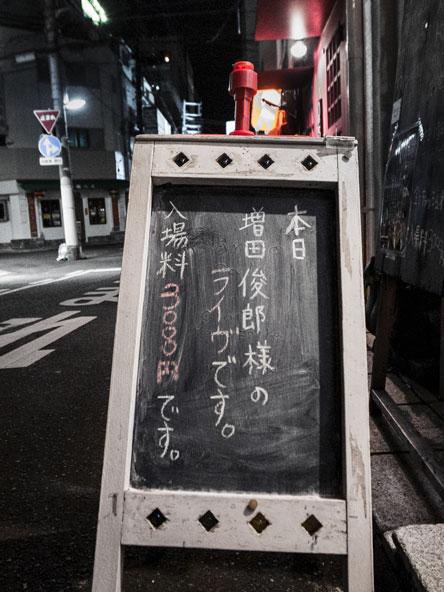 本日
増田俊郎様の
ライヴです。
入場料300円です。
止まれ